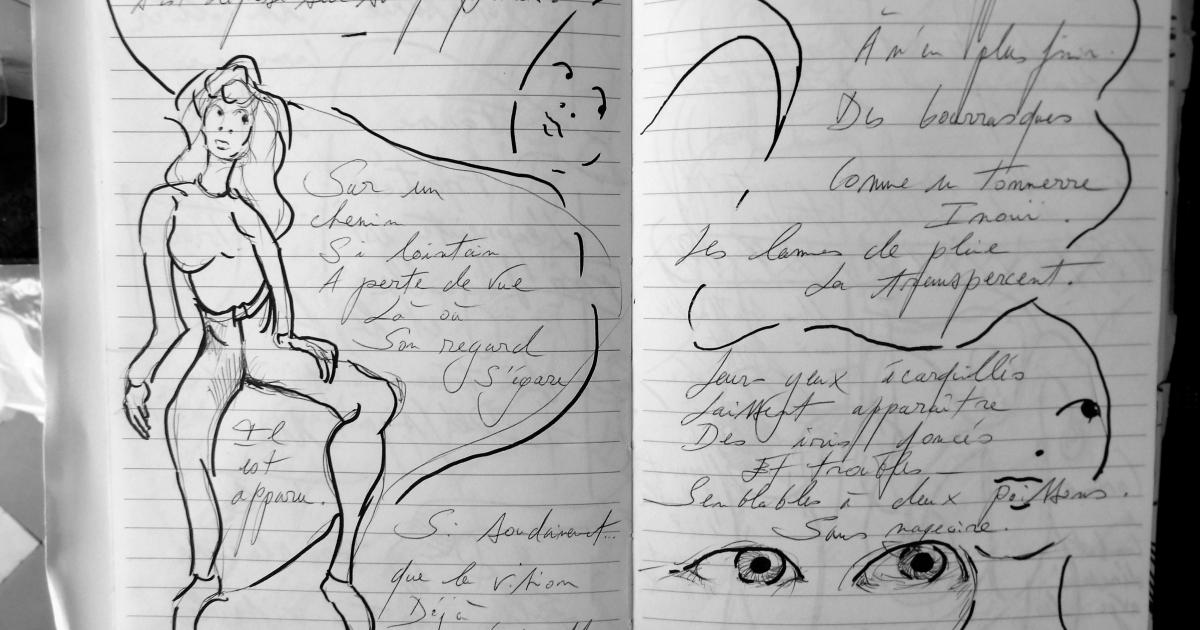 Sur un
chemin
Si lointain
A perte de vue
Là où
Son regard
S'égare
Il
est
apparu.
Si soudainement...
que la vision
Déjà
A n'en plus finir.
Des bourrasques
Comme un tonnerre
Inouï.
Les lames de pluie
La transpercent.
Leur yeux écarquillés
Laissent apparaître
Des iris foncés
Et troubles
Semblables à deux poissons.
Sans nageoire.